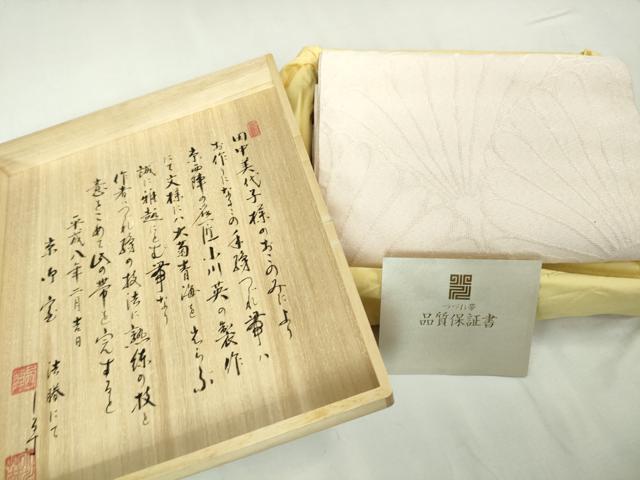 田中美代子様のおこのみにより
お作りになるこの手織つづれ帯は
京西陣の名匠小川英の製作
にて文様には大菊青海をあらふ
誠に雅趣にとむ帯なり
作者つづれ織の技法に熟練の技と
意をこめて此の帯を完すると
平成八年二月吉日
京御室
にて
つづれ帯
品質保証書